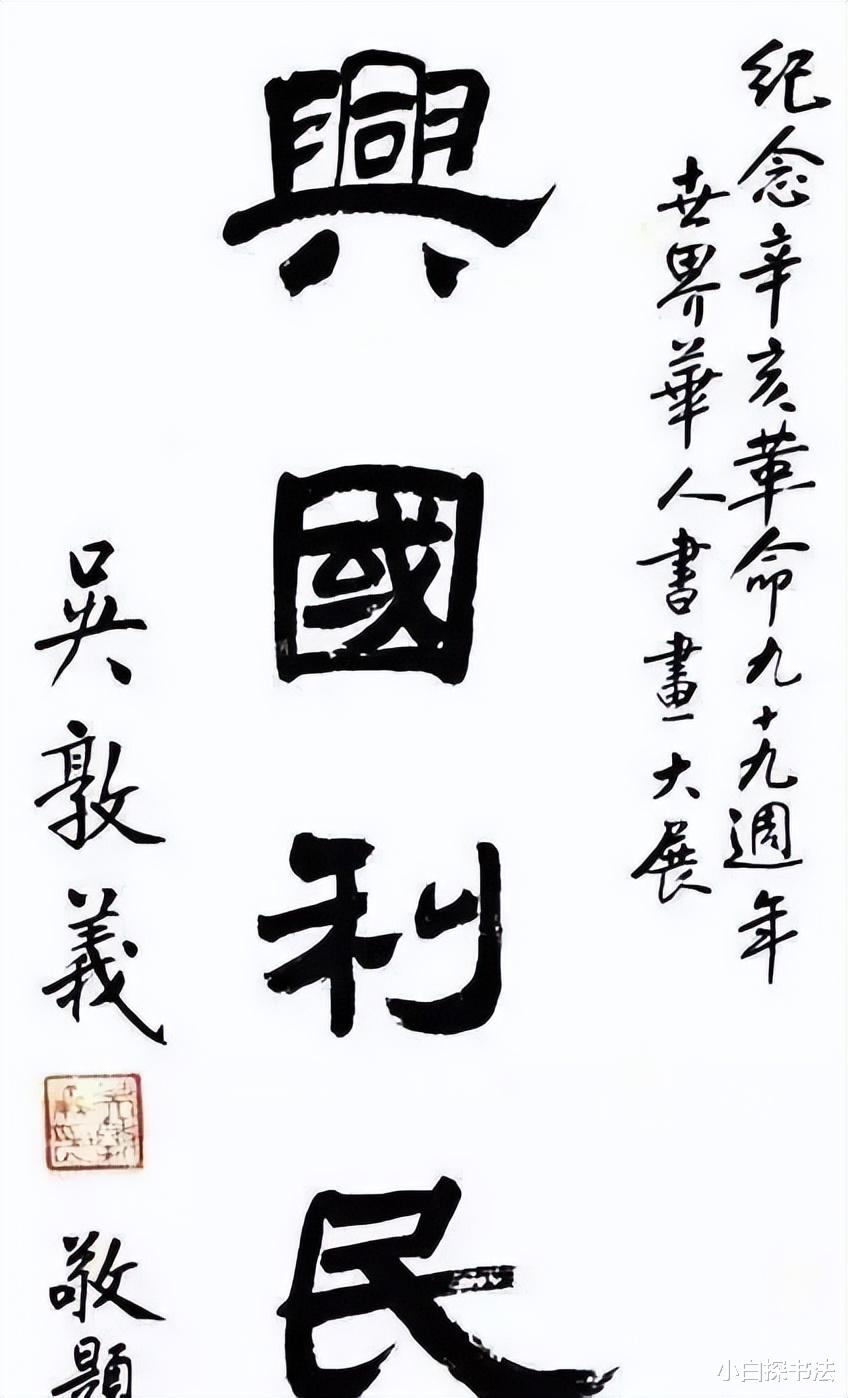 紀念辛亥革命九十九週年
世界華人書畫大展
興國利民
吳敦義
敬題
小白探书法